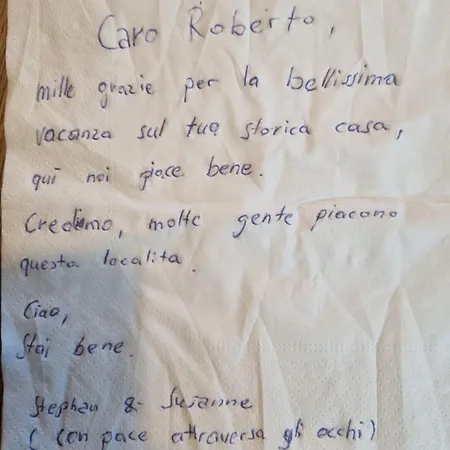 Caro Roberto,
mille grazie per la bellissima
vacanza sul tua storica casa,
qui noi piace bene.
Crediamo, molte gente piacono
questa localita.
Ciao,
Stai bene.
Stephan & Susanne
( con pace attraversa gli occhi)